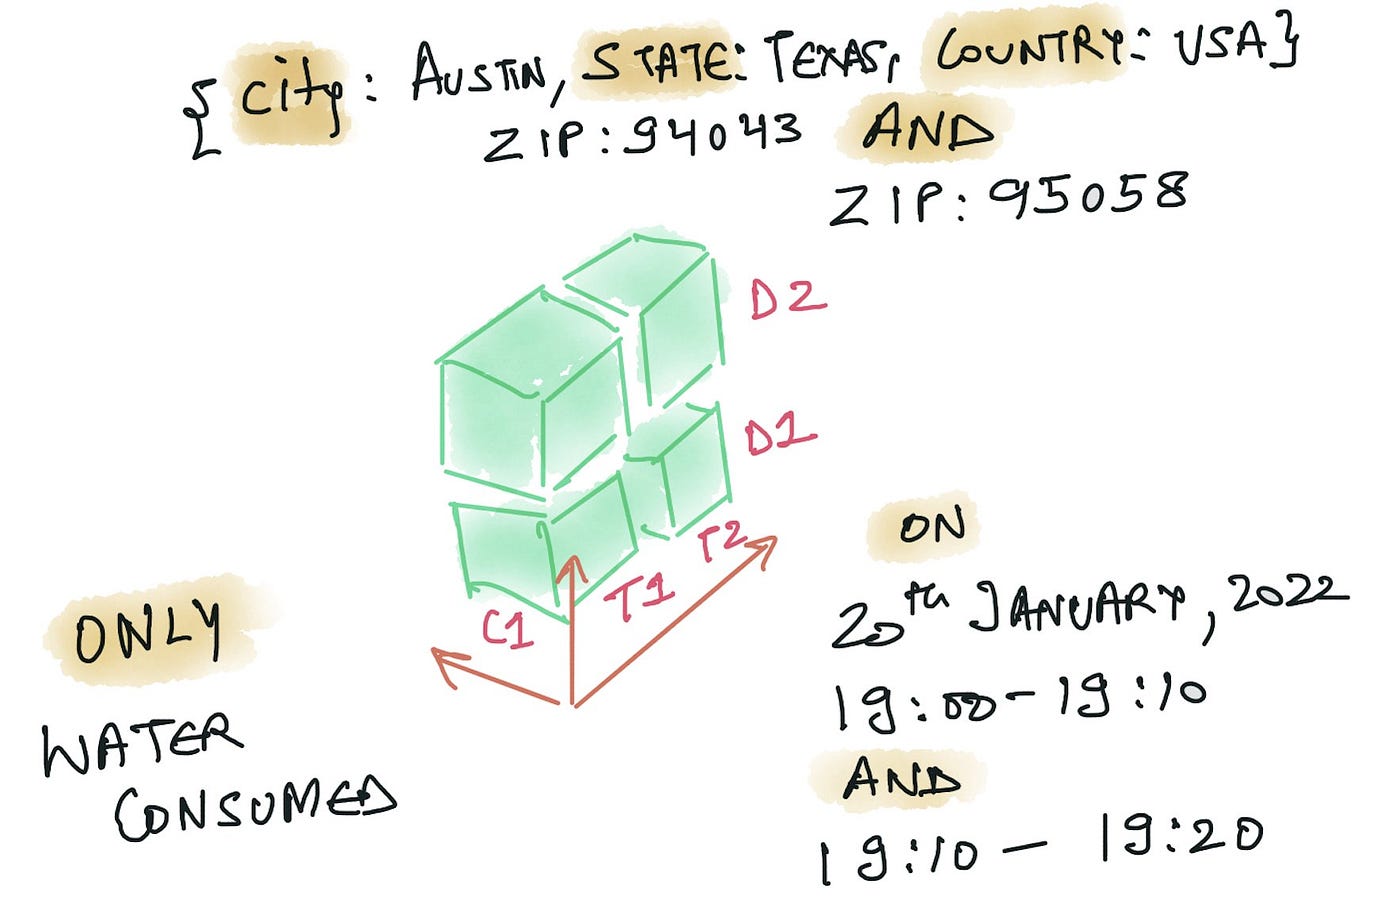 { City: AUSTIN, STATE: TEXAS, COUNTRY: USA}
ZIP: 94043 AND
ZIP: 95058
D2
D1
T2
T1
C1
ONLY
WATER
CONSUMED
ON
20th JANUARY, 2022
19:00-19:10
AND
19:10 - 19:20